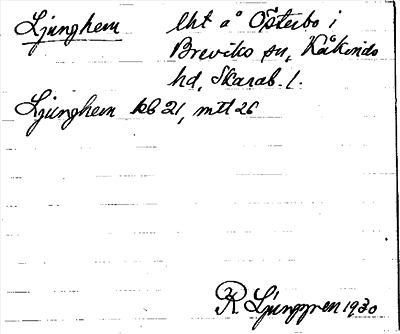 Ljunghem lht å Österbo i
Breviks sn, Kåkinds
hd, Skarab. l.
Ljunghem kb 21, mtl 26
R Ljunggren 1930